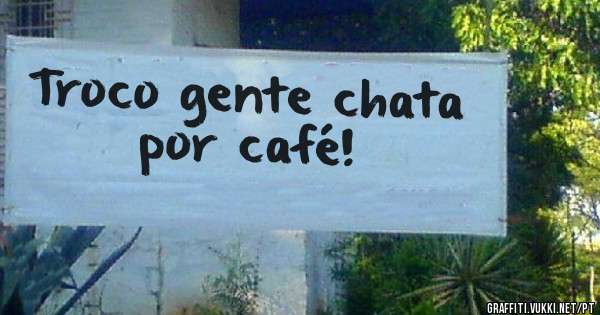 Troco gente chata
por café!
GRAFFITI.VUKKI.NET/PT